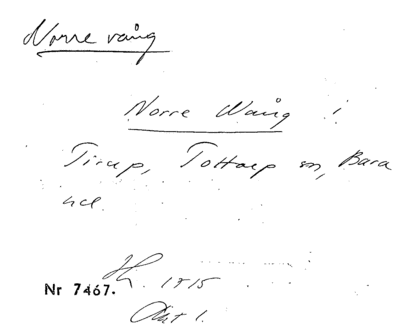 Norre vång
Norre Wång i
Tirup, Tottarp sn, Bara
hd.
Nr 7467. 1715
Akt 1.